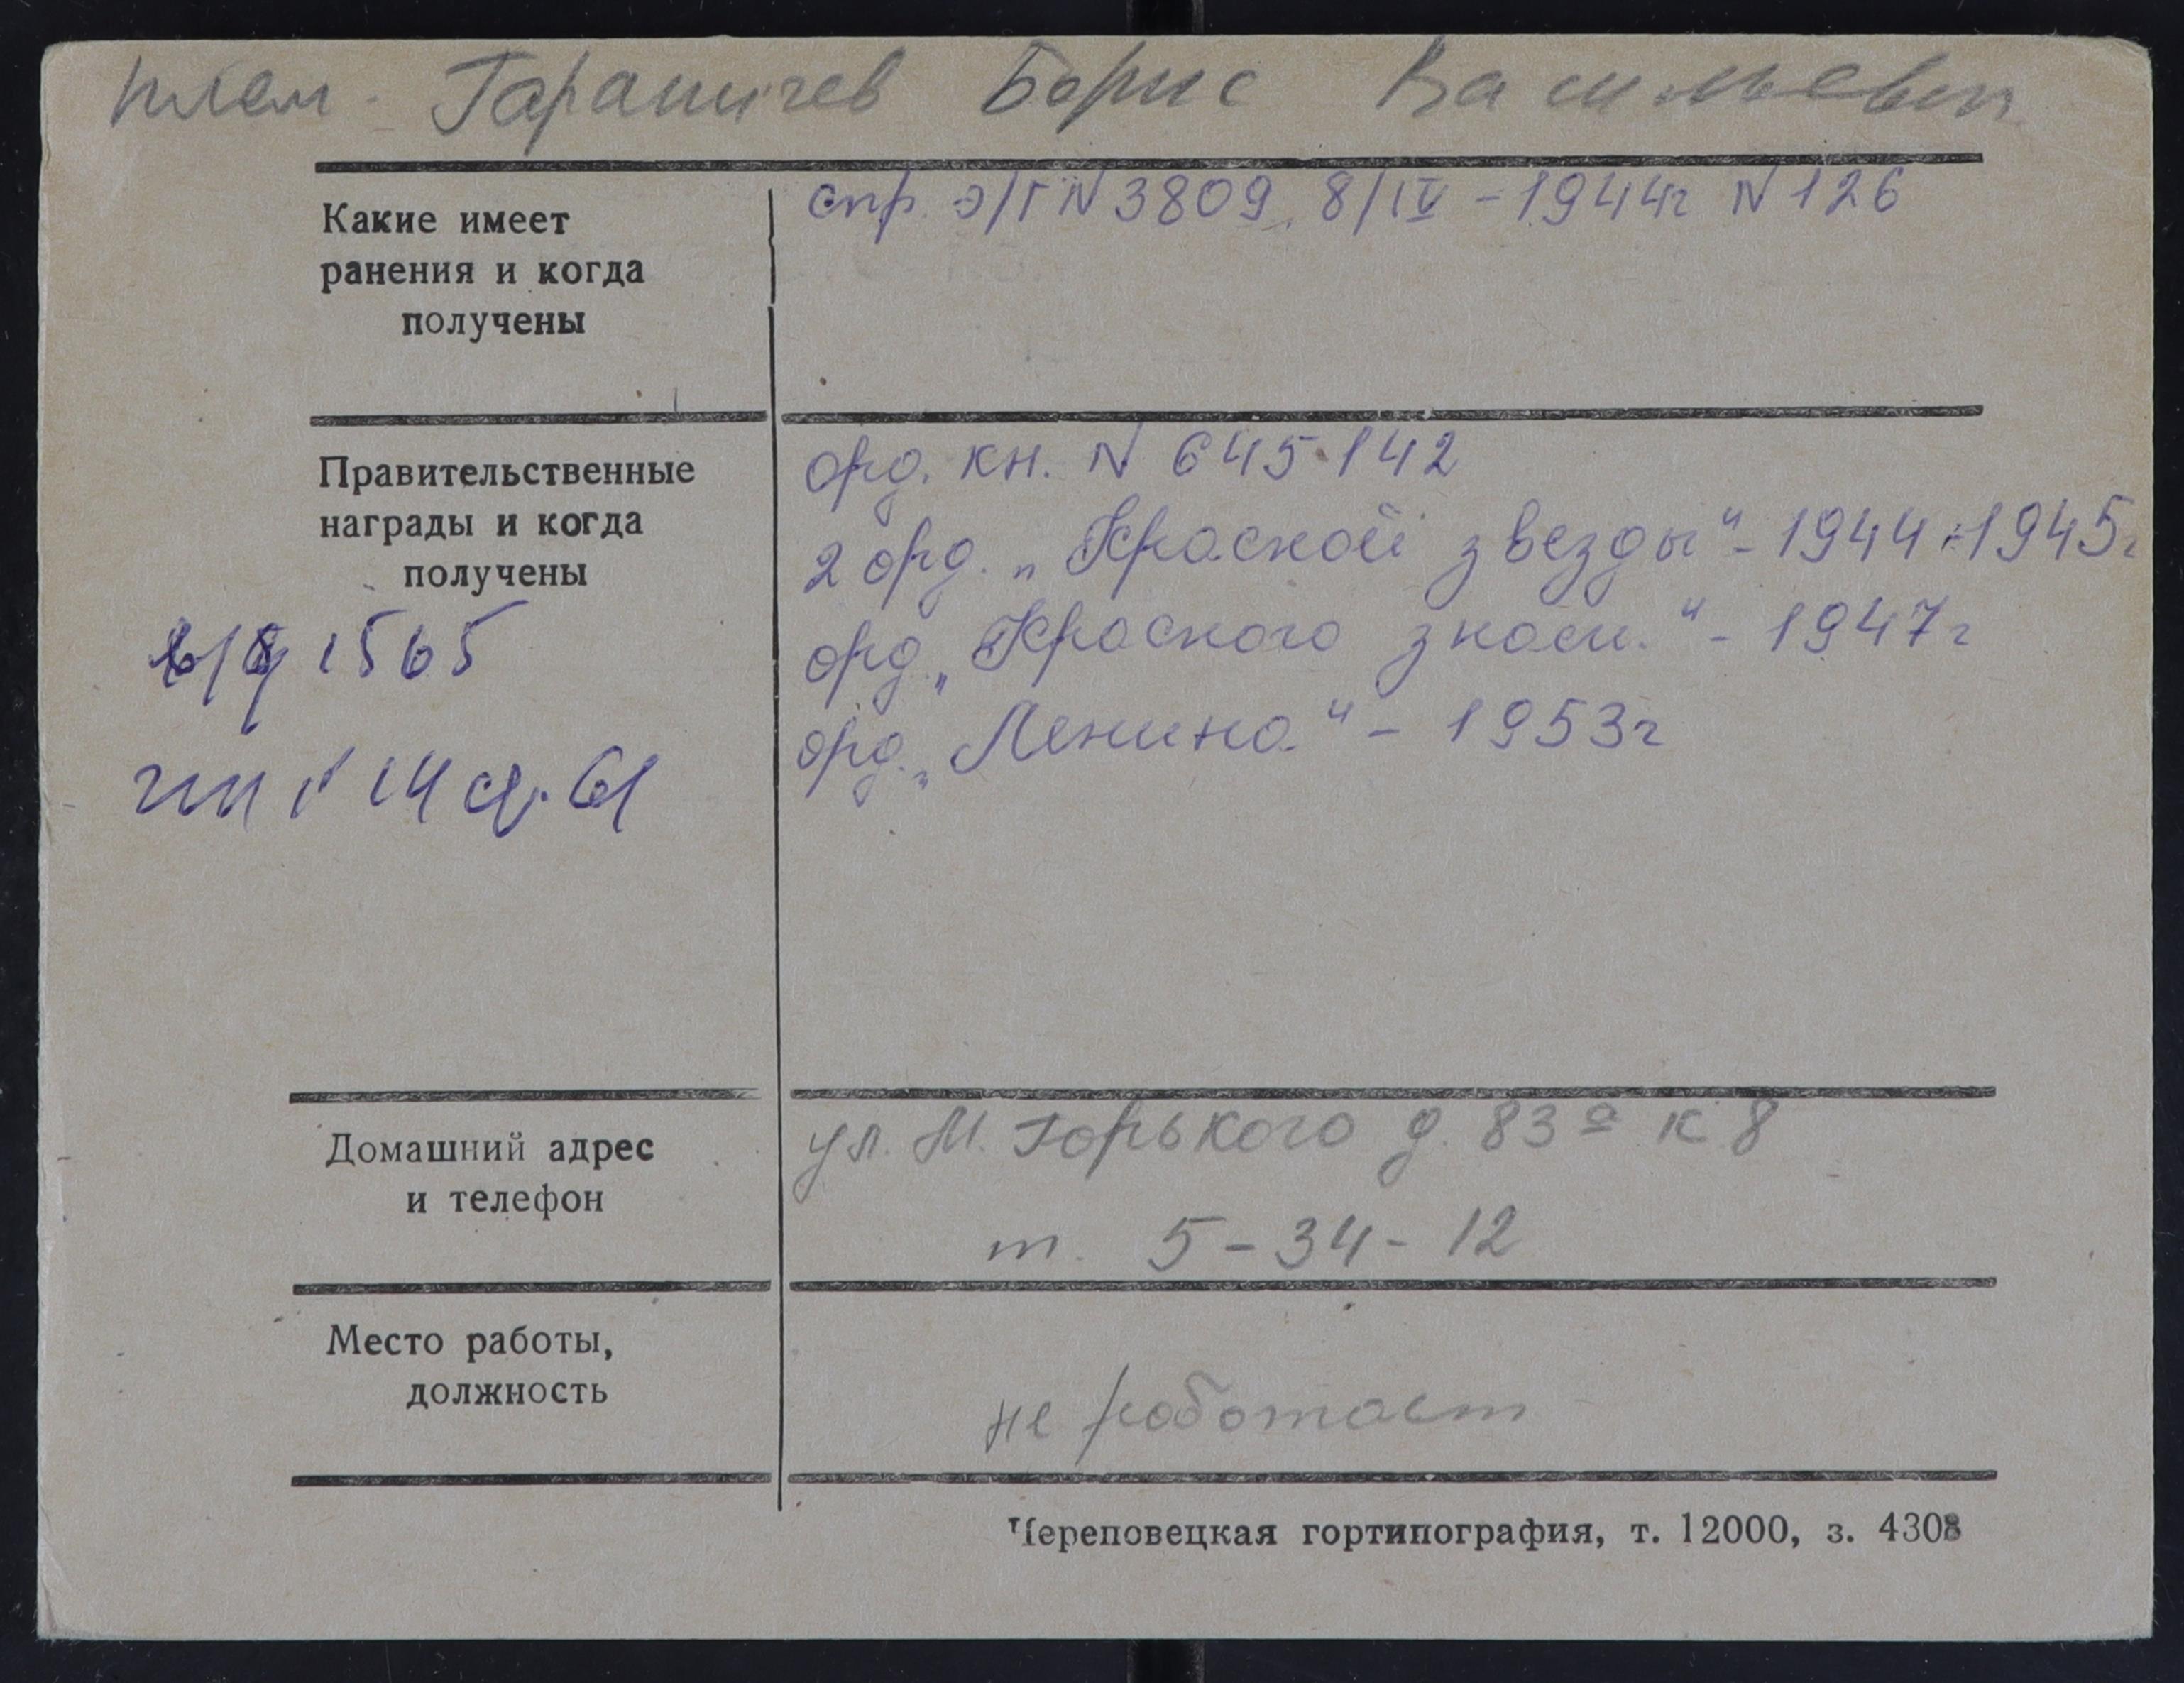 плем - Гараничев Борис Васильевич
Какие имеет ранения и когда получены
спр. э/г N 3809 8/IV - 1944г N 126
Правительственные награды и когда получены
орд. кн. N 645142
2 орд. „Красной звезды" - 1944 : 1945г
орд „Красного знам." - 1947г
орд. „Ленина" - 1953г
1565
14 61
Домашний адрес и телефон
ул. М. Горького д. 83а к 8
т. 5-34-12
Место работы, должность
не работает
Череповецкая гортипография, т. 12000, з. 4308